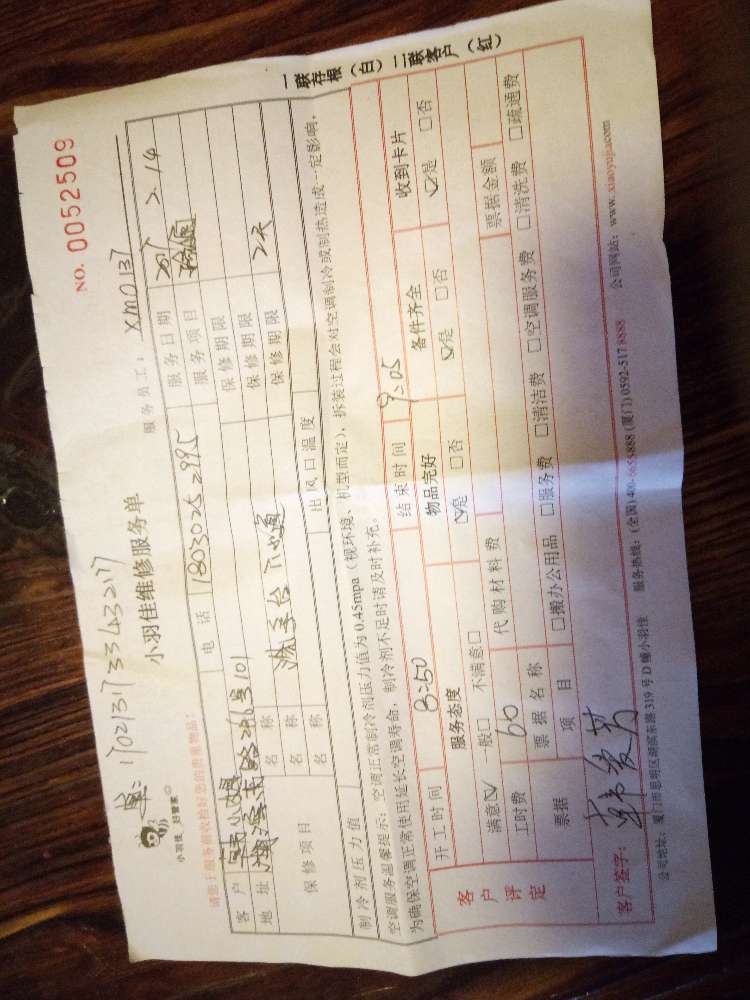 NO. 0052509
单：170213173343217
小羽佳 好管家
小羽佳维修服务单
服务员工：XM0137
请您于服务前收检好您的贵重物品：
客户 小姐 电话 18030252995 服务日期 2017 2.14
地址 246号101 服务项目
保修项目 名称 保修期限
名称 洗手台下水道 保修期限
名称 保修期限 2天
制冷剂压力值 出风口温度
空调服务温馨提示：空调正常制冷剂压力值为0.45mpa（视环境、机型而定），拆装过程会对空调制冷或制热造成一定影响，
为确保空调正常使用延长空调寿命，制冷剂不足时请及时补充。
客户评定 开工时间 8:50 结束时间 9:05
服务态度 物品完好 备件齐全 收到卡片
满意☑ 一般□ 不满意□ ☑是 □否 ☑是 □否 ☑是 □否
工时费 60 代购材料费
票据 票据名称 票据金额
项目 □搬办公用品 □服务费 □清洁费 □空调服务费 □清洗费 □疏通费
客户签字：
公司地址：厦门市思明区湖滨东路319号D幢小羽佳 服务热线：(全国)400-6655888 (厦门)0592-5178888 公司网站：www.xiaoyujia.com
一联存根（白）二联客户（红）